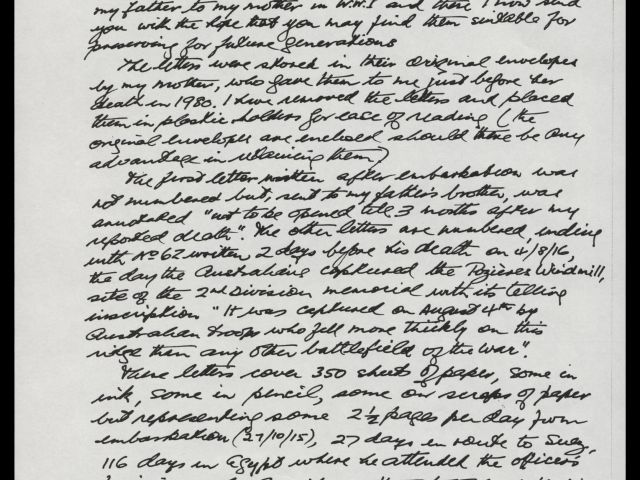 my father to my mother in W.W.I and these I now send
you with the hope that you may find them suitable for
preserving for future generations
The letters were stored in their original envelopes
by my mother, who gave them to me just before her
death in 1980. I have removed the letters and placed
them in plastic holders for ease of reading (the
original envelopes are enclosed should there be any
advantage in retaining them)
The first letter written after embarkation was
not numbered but, sent to my father's brother, was
annotated "not to be opened till 3 months after my
reported death". The other letters are numbered, ending
with No 62 written 2 days before his death on 4/8/16,
the day the Australians captured the Pozieres Windmill,
site of the 2nd Division memorial with its telling
inscription "It was captured on August 4th by
Australian troops who fell more thickly on this
ridge than any other battlefield of the war".
These letters cover 350 sheets of paper, some in
ink, some in pencil, some on scraps of paper
but representing some 2½ pages per day from
embarkation (27/10/15), 27 days en route to Suez,
116 days in Egypt where he attended the officers